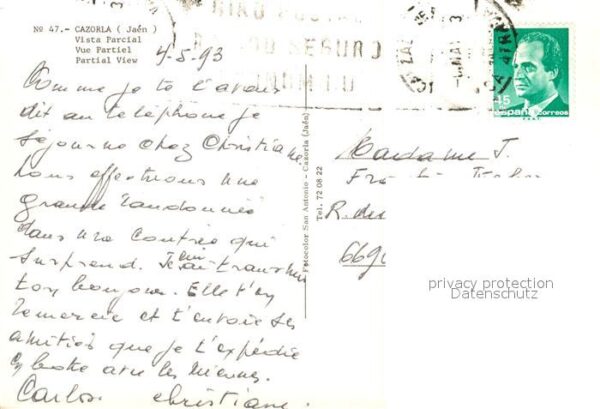 Nº 47.- CAZORLA ( Jaén )
Vista Parcial
Vue Partiel
Partial View
4-5-93
Comme je te l'avais
dit au téléphone je
séjourne chez Christiane
nous effectuons une
grande randonnée
dans une contrée qui
surprend. Je lui ai transmis
ton bonjour. Elle t'en
remercie et t'envoie ses
amitiés que je t'expédie
avec les miennes.
Carlos Christiane.
Fotocolor San Antonio - Cazorla (Jaén)
Tel. 72 08 22
GIRO POSTAL
SEGURO
15
España correos
Madame J.
R. des
privacy protection
Datenschutz